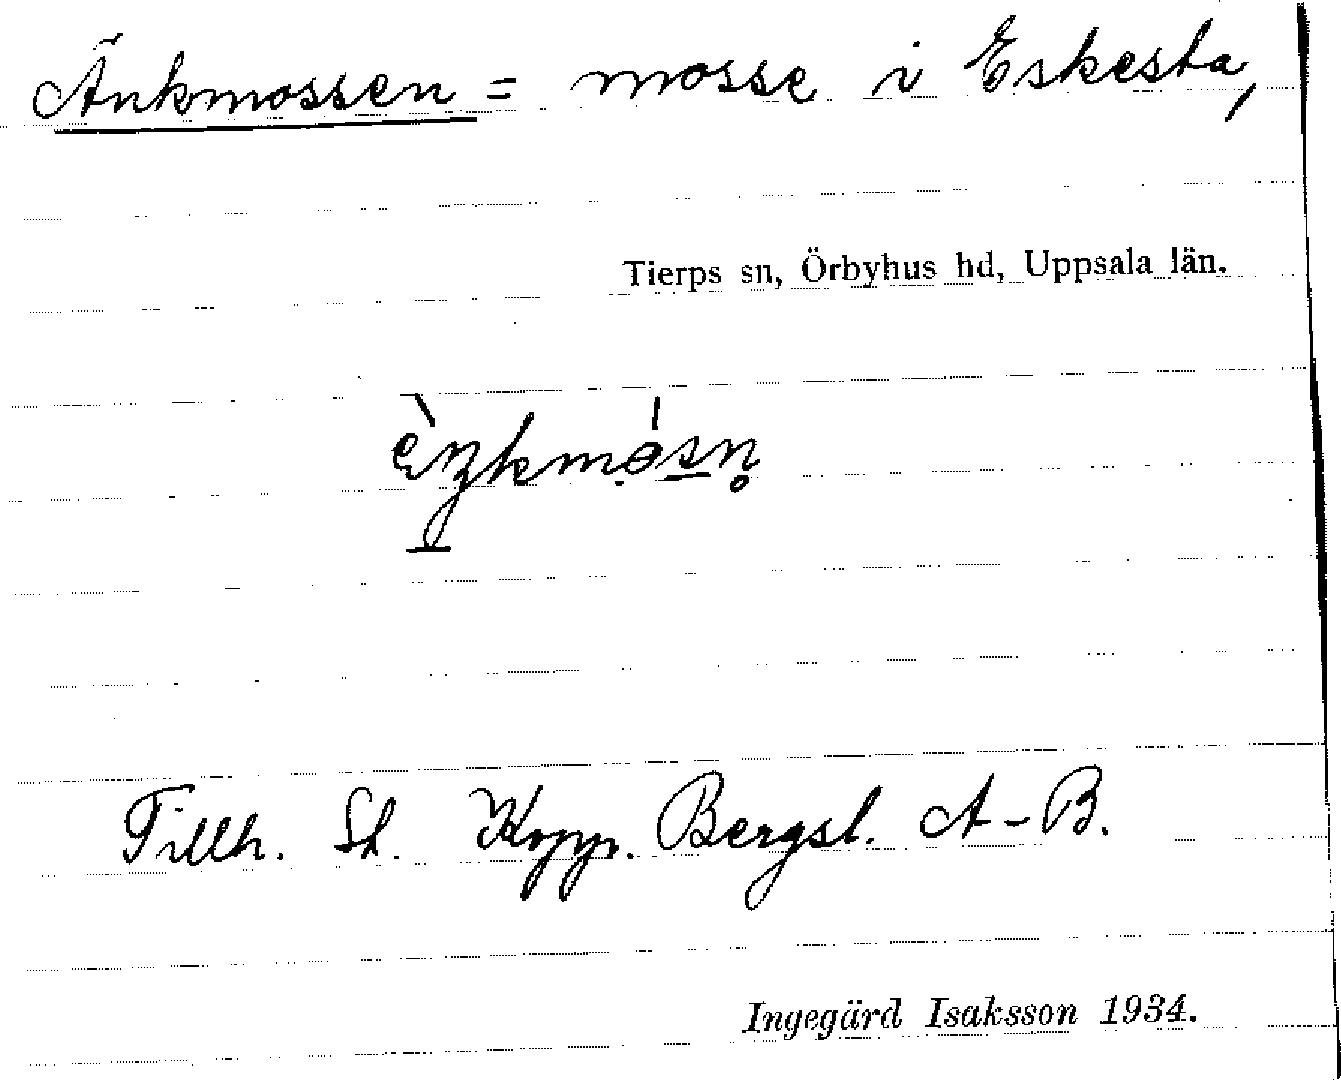 Änkmossen = mosse i Eskesta,
Tierps sn, Örbyhus hd, Uppsala län.
Tillh. St. Kopp. Bergsl. A-B.
Ingegärd Isaksson 1934.